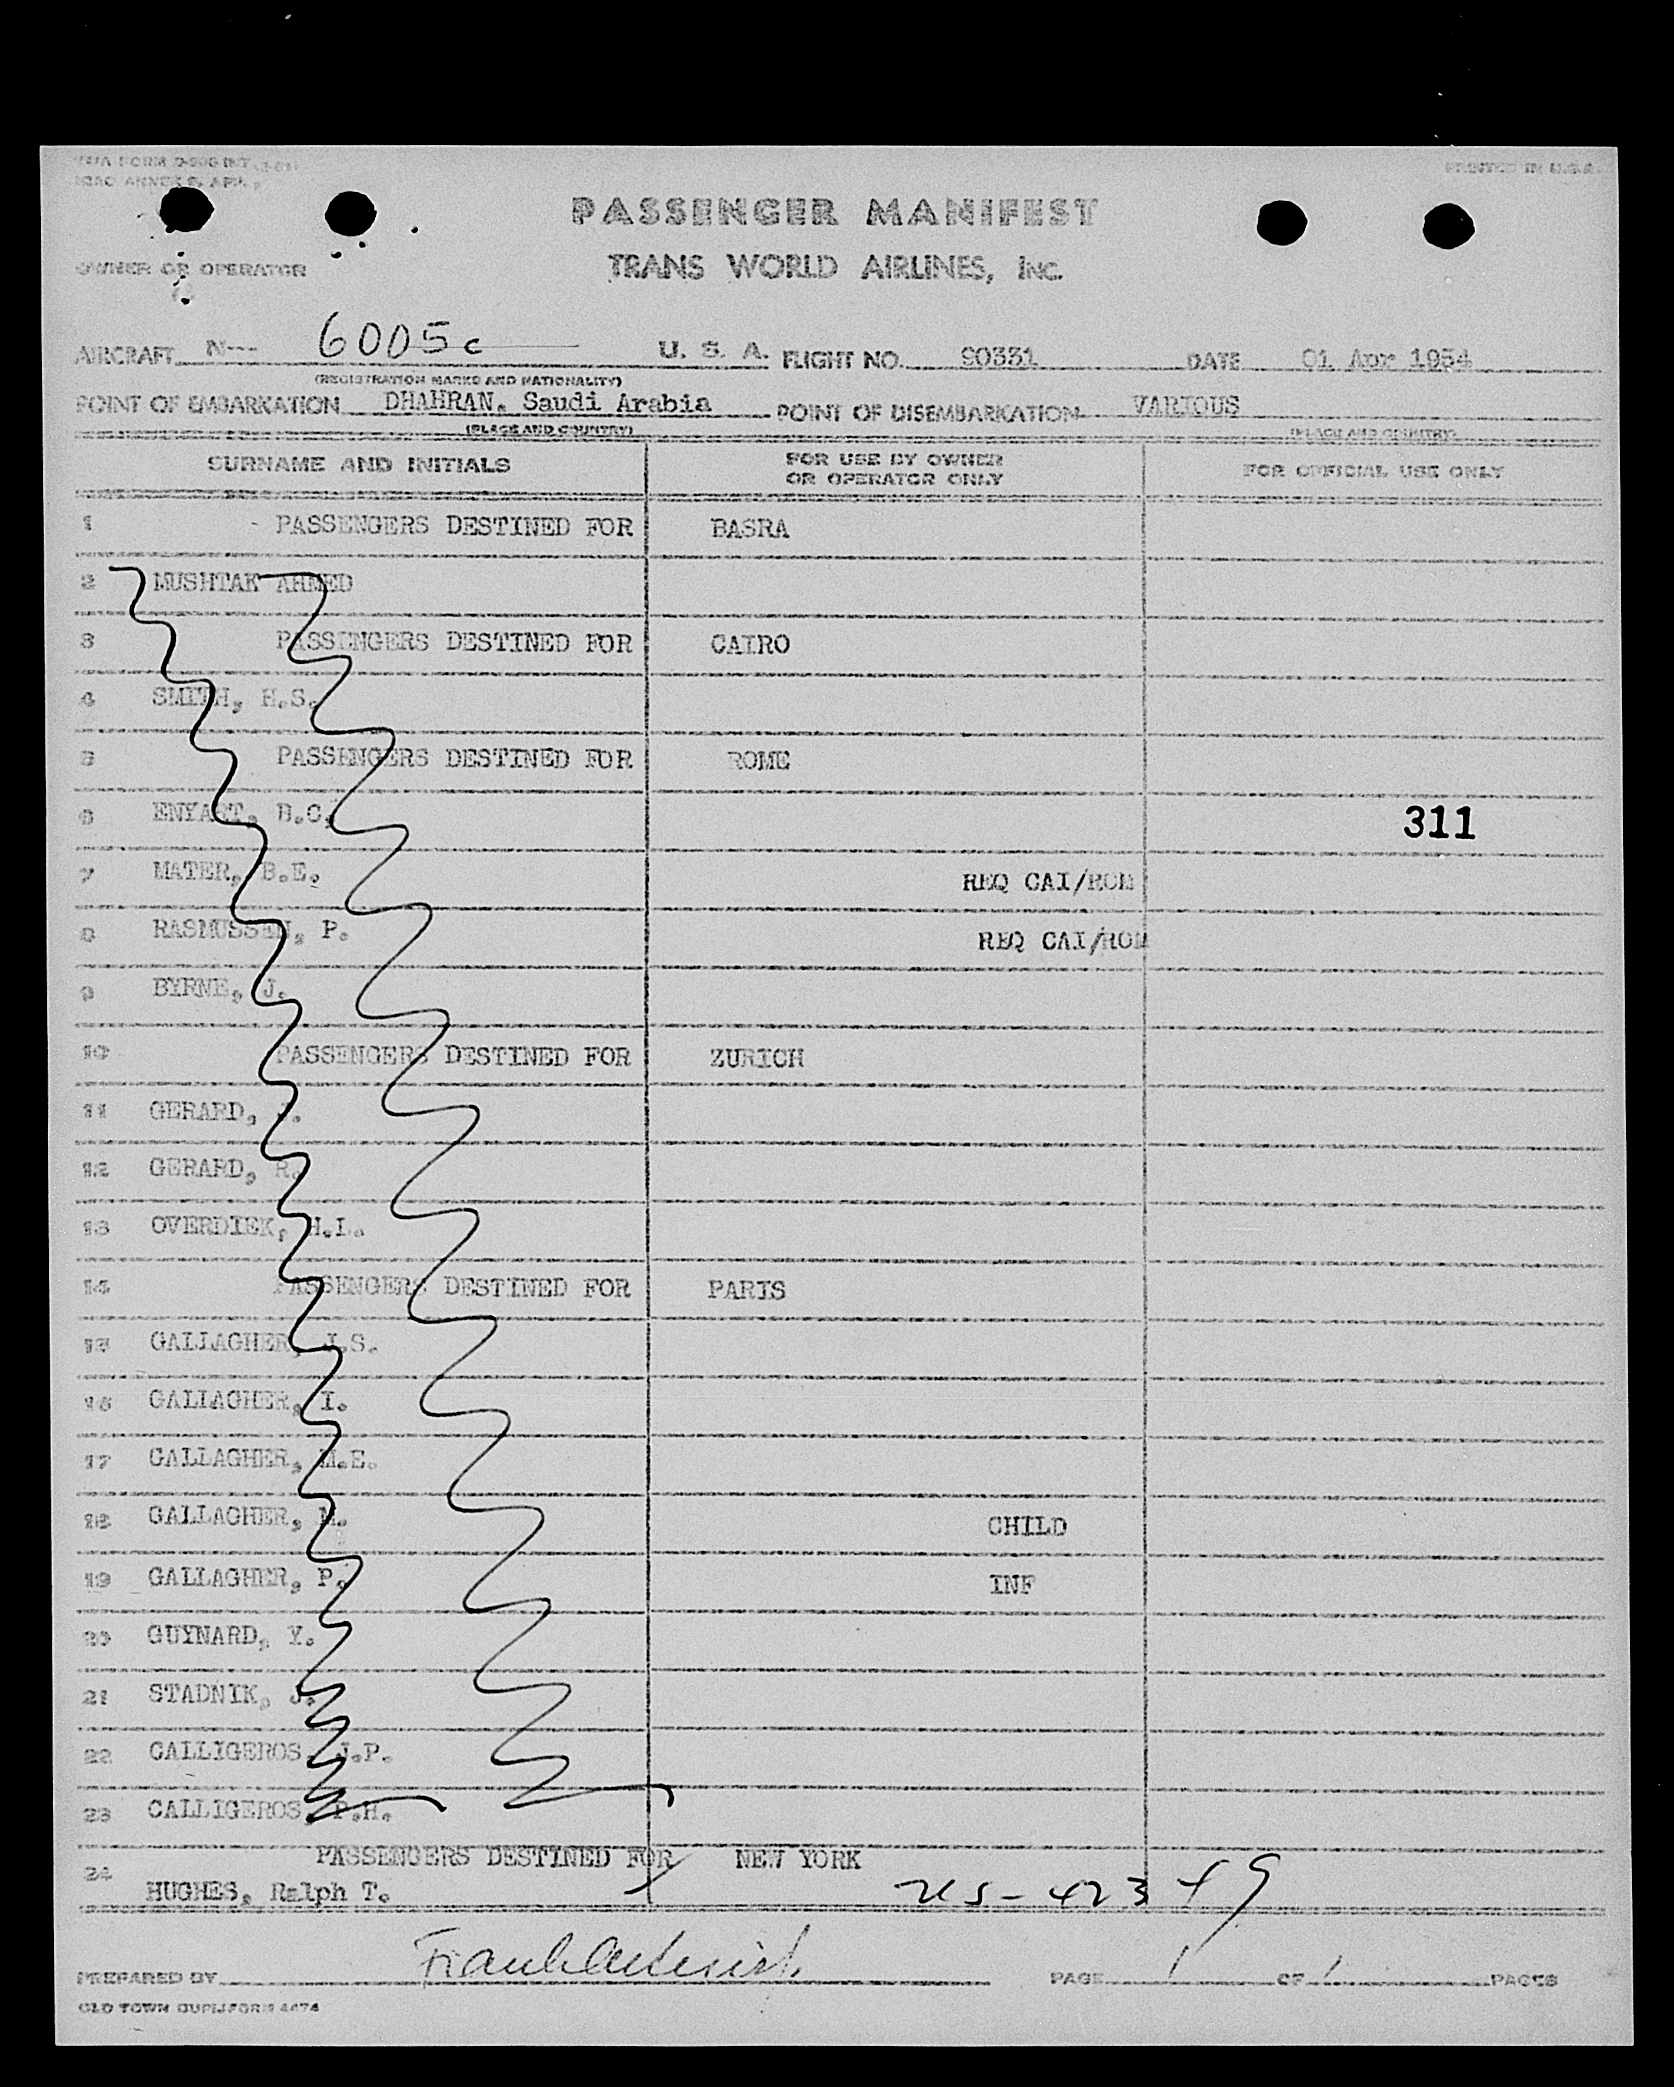 PRINTED IN U.S.A.
PASSENGER MANIFEST
OWNER OR OPERATOR
TRANS WORLD AIRLINES, INC.
AIRCRAFT N--- 6005c U. S. A. FLIGHT NO. 90331 DATE 01 Apr 1954
(REGISTRATION MARKS AND NATIONALITY)
POINT OF EMBARKATION DHAHRAN. Saudi Arabia POINT OF DISEMBARKATION VARIOUS
(PLACE AND COUNTRY) (PLACE AND COUNTRY)
SURNAME AND INITIALS FOR USE BY OWNER OR OPERATOR ONLY FOR OFFICIAL USE ONLY
1 - PASSENGERS DESTINED FOR BASRA
2 MUSHTAK AHMED
3 PASSENGERS DESTINED FOR CAIRO
4 SMITH, H.S.
5 PASSENGERS DESTINED FOR ROME
6 ENYART, 311
7 MATER, B.E. REQ CAI/ROM
8 RASMUSSEN, P. REQ CAI/ROM
9 BYRNE, J.
10 PASSENGERS DESTINED FOR ZURICH
11 GERARD, J.
12 GERARD, R.
13 OVERDIEK, H.L.
14 PASSENGERS DESTINED FOR PARIS
15 GALLAGHER, J.S.
16 GALLAGHER, I.
17 GALLAGHER, M.E.
18 GALLAGHER, M. CHILD
19 GALLAGHER, P. INF
20 GUYNARD, Y.
21 STADNIK, J.
22 CALLIGEROS, J.P.
23 CALLIGEROS, P.H.
24 PASSENGERS DESTINED FOR NEW YORK
HUGHES, Ralph T. US-42349
PREPARED BY PAGE 1 OF 1 PAGES
OLD TOWN DUPLIFORM 4474